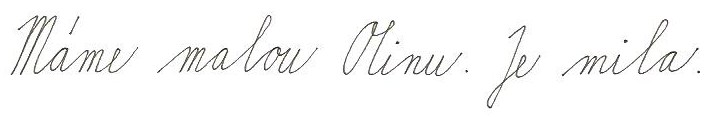 Máme malou Olinu. Je mila.